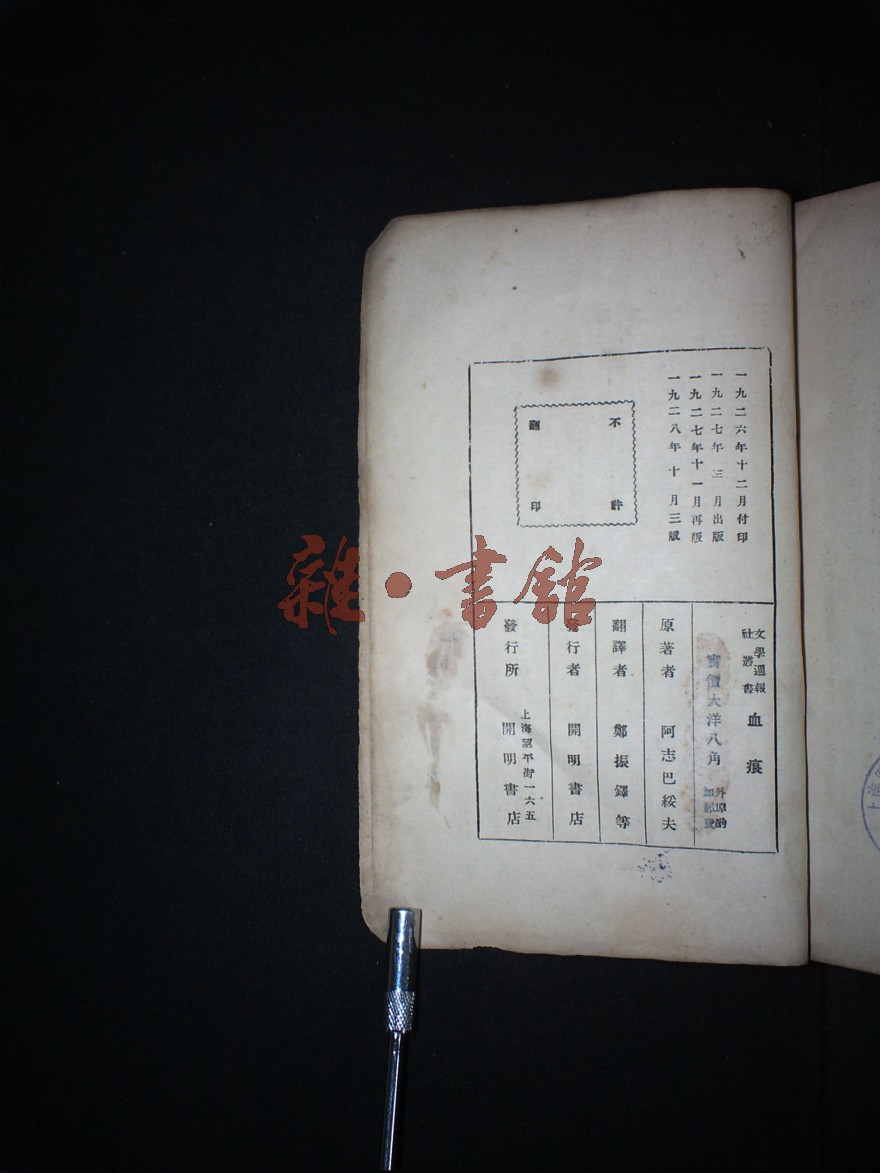 一九二六年十二月付印
一九二七年三月出版
一九二七年十一月再版
一九二八年十月三版
不許
翻印
文學週報
社叢書
血痕
實價大洋八角
外埠酌
加郵費
原著者 阿志巴綏夫
翻譯者 鄭振鐸等
發行者 開明書店
發行所 上海望平街一六五
開明書店
雜·書館
上海